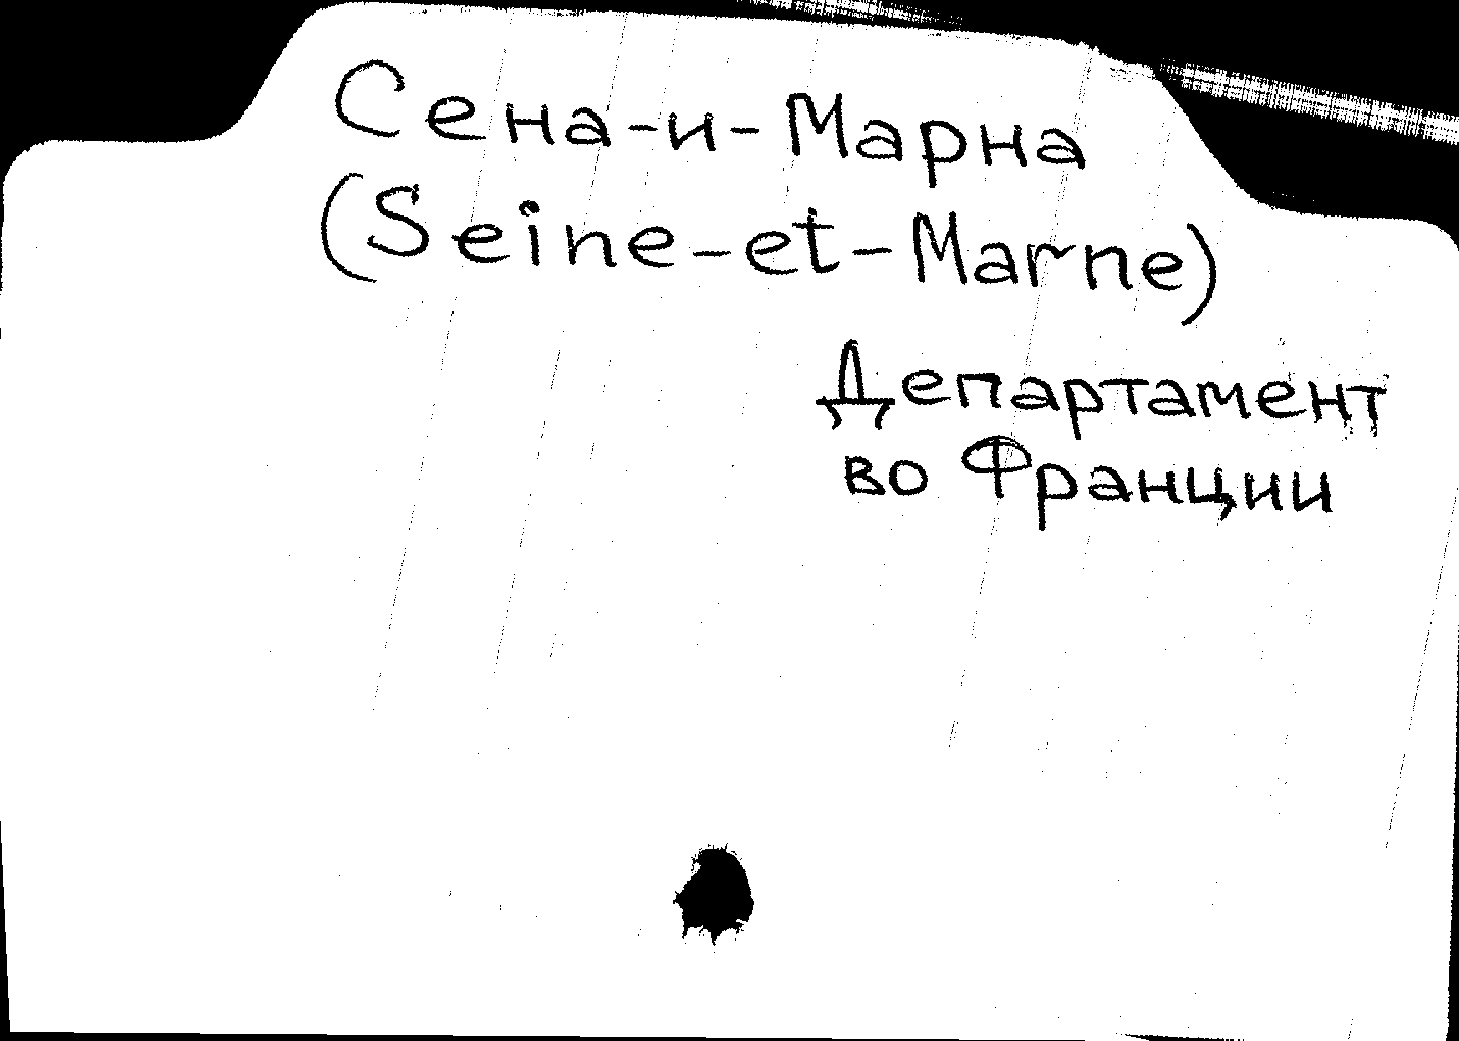 Сена-и-Марна
(Seine-et-Marne)
Департамент
во Франции